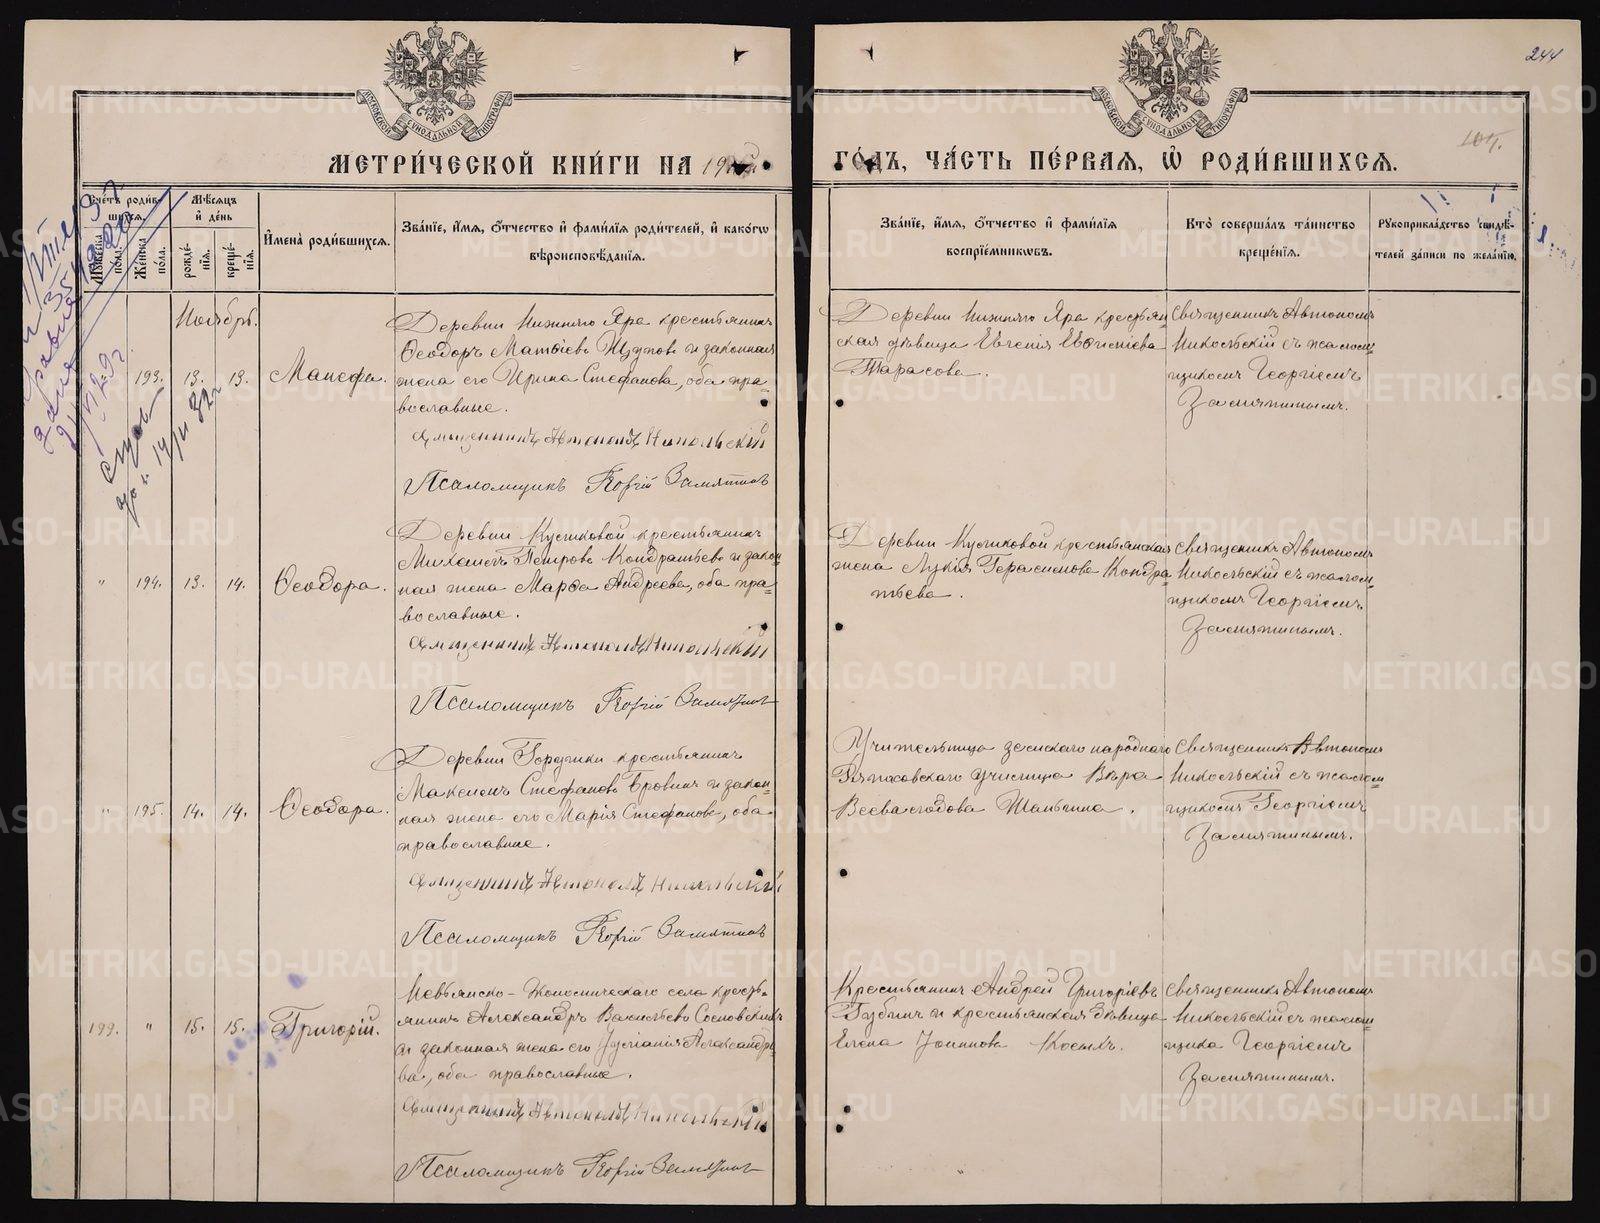 МОСКОВСКОЙ СѴНОДАЛЬНОЙ ТИПОГРАФІИ
МОСКОВСКОЙ СѴНОДАЛЬНОЙ ТИПОГРАФІИ
244
МЕТРИ́ЧЕСКОЙ КНИ́ГИ НА 19
ГО́ДЪ, ЧА́СТЬ ПЕ́РВАЯ, Ѡ҆ РОДИ́ВШИХСЯ.
Сче́тъ роди́в-
шихся.
Мꙋ́жеска по́ла.
Же́нска по́ла.
Мѣ́сяцъ
и҆ де́нь
рожде́-
нїя.
креще́-
нїя.
И҆мена̀ роди́вшихся.
Зва́нїе, и҆́мя, ѻ҆́тчество и҆ фами́лїя роди́телей, и҆ како́гѡ
вѣроисповѣ́данїя.
Зва́нїе, и҆́мя, ѻ҆́тчество и҆ фами́лїя
воспрїе́мникѡвъ.
Кто̀ соверша́лъ та́инство
креще́нїя.
Рꙋкоприкла́дство свидѣ́-
телей за́писи по жела́нїю.
Ноябрь.
193. 13. 13. Манефа.
Деревни Нижняго Яра крестьянинъ
Ѳеодоръ Матѳіевъ Щуповъ и законная
жена его Ирина Стефанова, оба пра-
вославные.
Священникъ Автономъ Никольскій
Псаломщикъ Георгій Замятинъ
Деревни Нижняго Яра крестьян-
ская дѣвица Евгенія Евѳиміева
Тарасова.
Священникъ Автономъ
Никольскій съ псалом-
щикомъ Георгіемъ
Замятинымъ.
" 194. 13. 14. Ѳеодора.
Деревни Куликовой крестьянинъ
Михаилъ Петровъ Кондратьевъ и закон-
ная жена Марѳа Андреева, оба пра-
вославные.
Священникъ Автономъ Никольскій
Псаломщикъ Георгій Замятинъ
Деревни Куликовой крестьянская
жена Лукія Герасимова Кондра-
тьева.
Священникъ Автономъ
Никольскій съ псалом-
щикомъ Георгіемъ
Замятинымъ.
" 195. 14. 14. Ѳеодора.
Деревни Горушки крестьянинъ
Максимъ Стефановъ Бровинъ и закон-
ная жена его Марія Стефанова, оба
православные.
Священникъ Автономъ Никольскій
Псаломщикъ Георгій Замятинъ
Учительница земскаго народнаго
училища Вѣра
Всеволодова Шаньгина.
Священникъ Автономъ
Никольскій съ псалом-
щикомъ Георгіемъ
Замятинымъ.
199. " 15. 15. Григорій.
Невьянско-Экономическаго села кресть-
янинъ Александръ Васильевъ Сосновскихъ
и законная жена его Іуліанія Александро-
ва, оба православные.
Священникъ Автономъ Никольскій
Псаломщикъ Георгій Замятинъ
Крестьянинъ Андрей Григоріевъ
Губинъ и крестьянская дѣвица
Елена Іоаннова Косыхъ.
Священникъ Автономъ
Никольскій съ псалом-
щика Георгіемъ
Замятинымъ.
METRIKI.GASO-URAL.RU